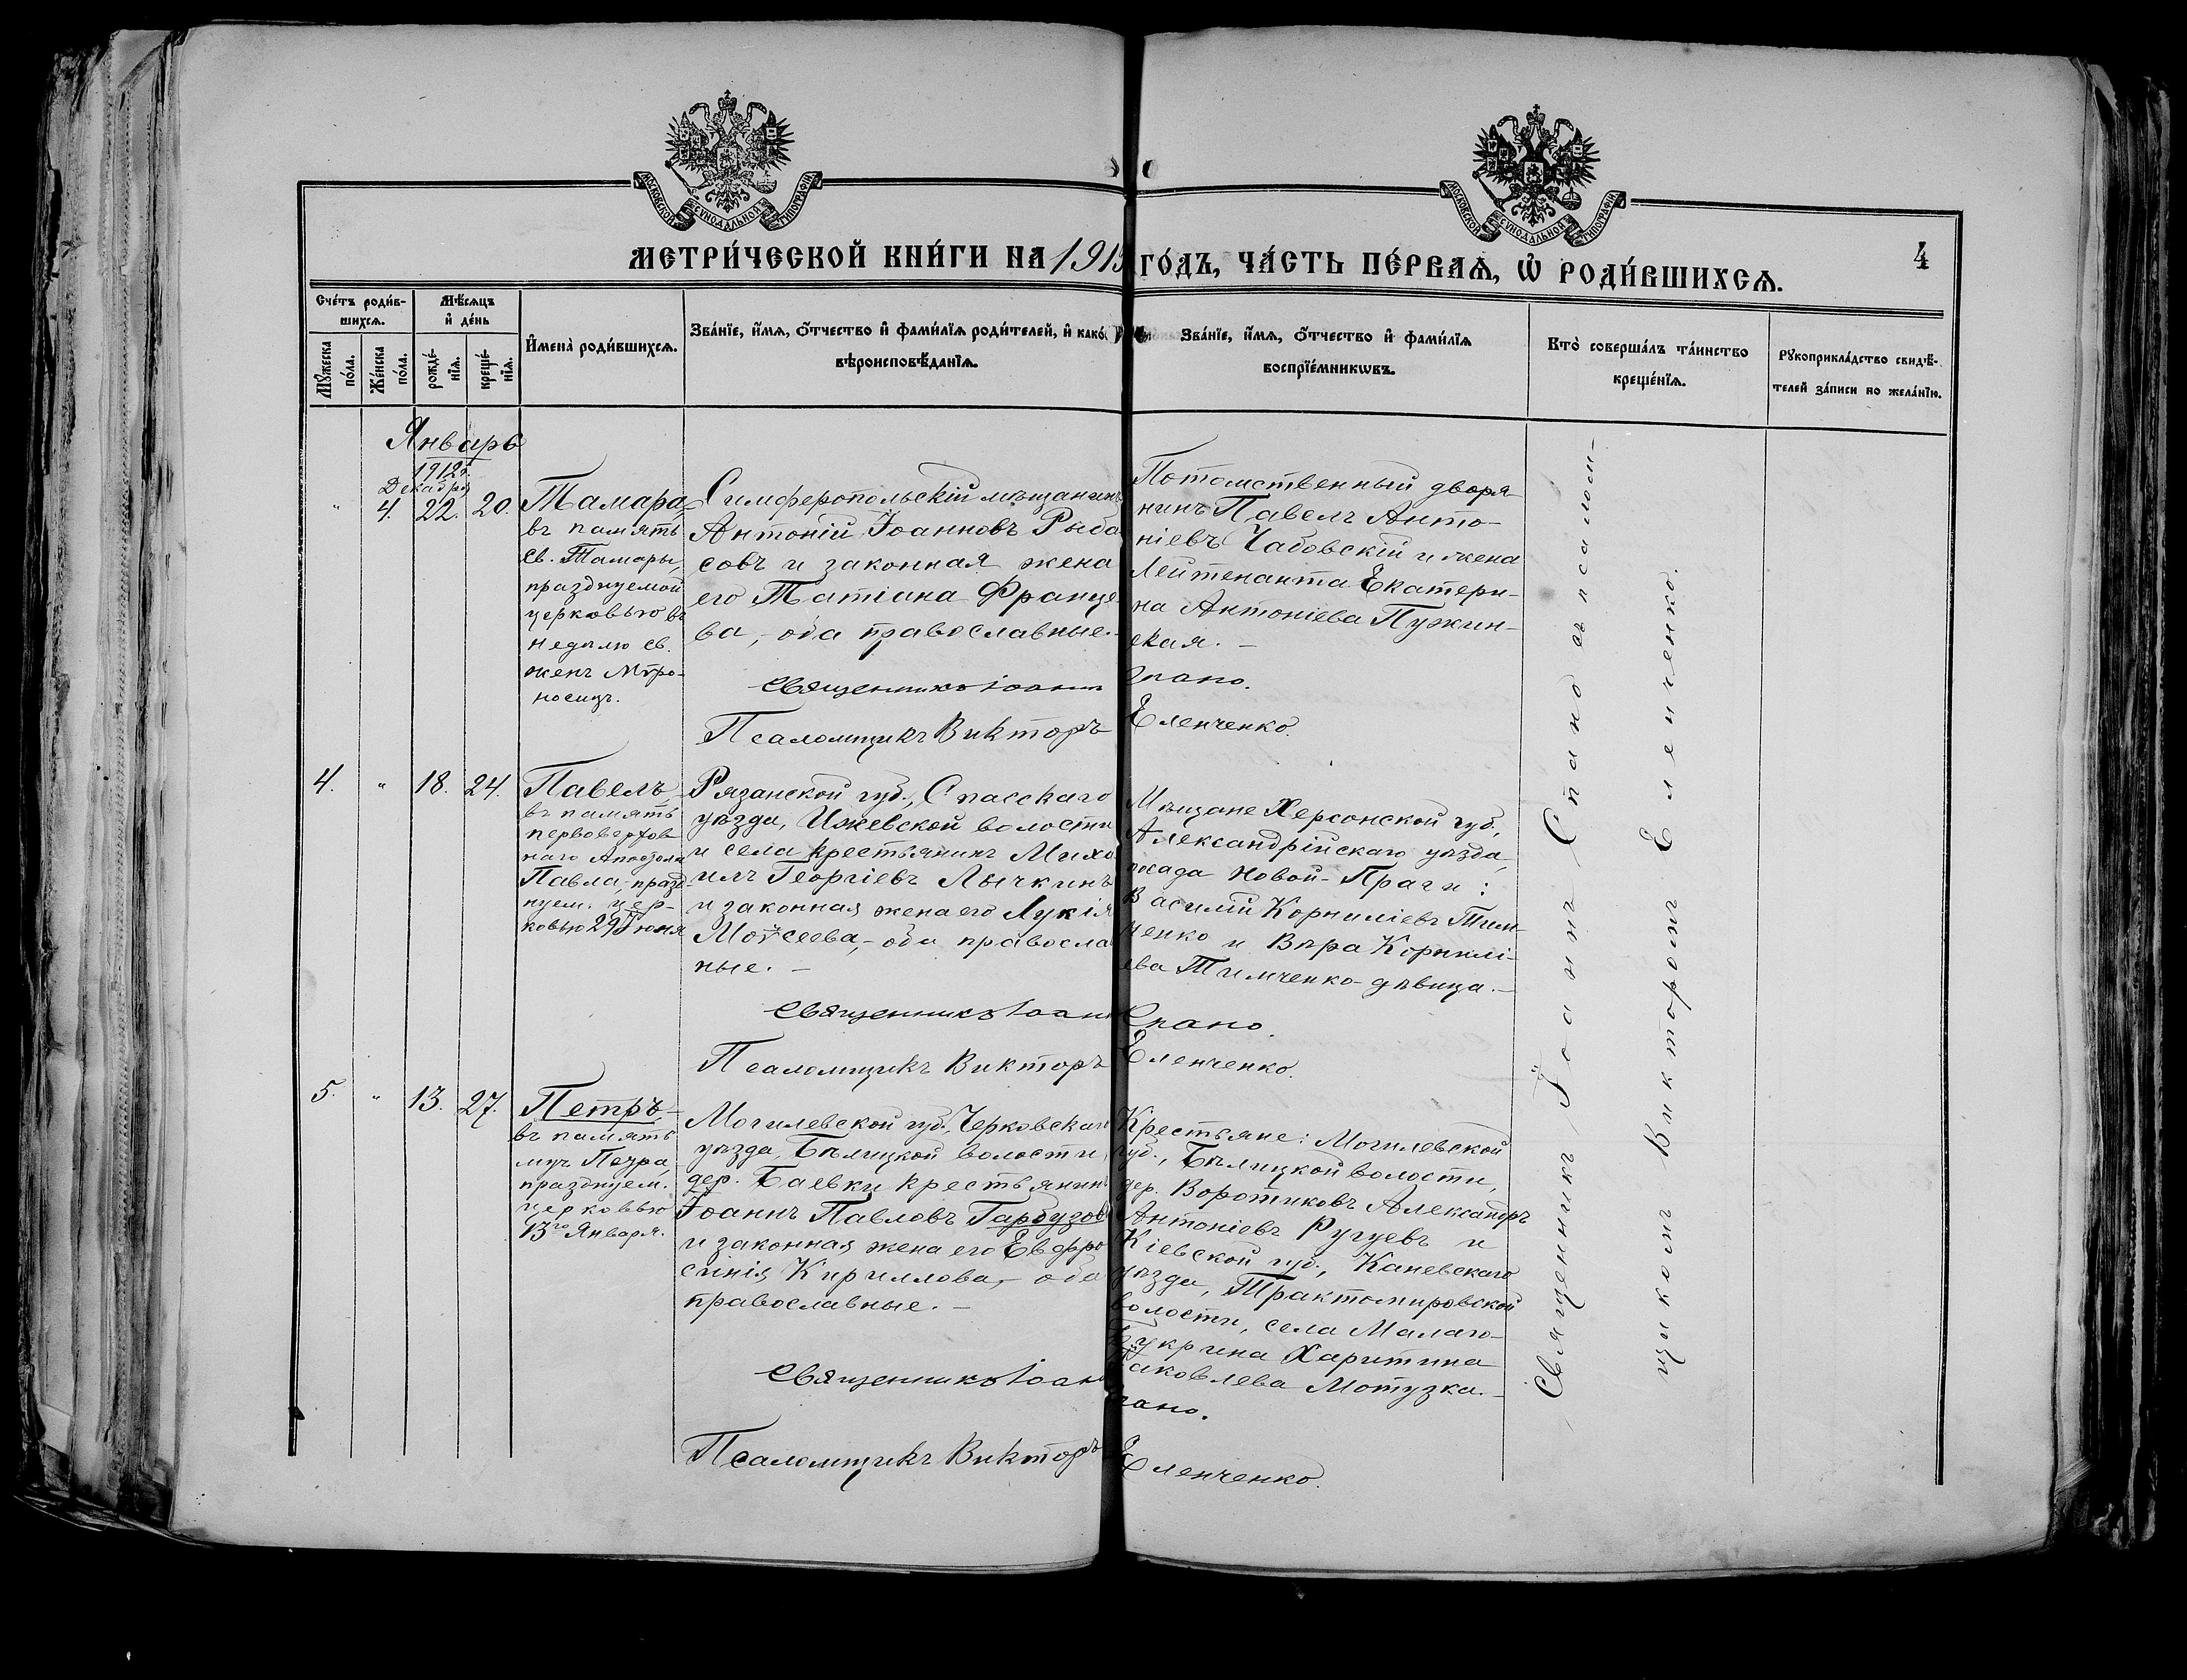 МОСКОВСКОЙ СѴНОДАЛЬНОЙ ТИПОГРАФІИ
МОСКОВСКОЙ СѴНОДАЛЬНОЙ ТИПОГРАФІИ
МЕТРИ́ЧЕСКОЙ КНИ́ГИ НА 1913 ГО́ДЪ, ЧА́СТЬ ПЕ́РВАѦ, Ѡ҆ РОДИ́ВШИХСѦ.
4
Сче́тъ роди́в-
шихсѧ.
Мѣ́сѧцъ
и҆ де́нь
Мꙋ́жеска по́ла.
Же́нска по́ла.
рожде́-
нїѧ.
креще́-
нїѧ.
И҆мена̀ роди́вшихсѧ.
Зва́нїе, и҆́мѧ, ѻ҆́тчество и҆ фами́лїѧ роди́телей, и҆ како́
вѣроисповѣ́данїѧ.
Зва́нїе, и҆́мѧ, ѻ҆́тчество и҆ фами́лїѧ
воспрїе́мникѡвъ.
Кто̀ соверша́лъ та́инство
креще́нїѧ.
Рꙋкоприкла́дство свидѣ́-
телей за́писи по жела́нїю.
Январь
1912 г.
Декабря
" 4. 22. 20.
Тамара,
въ память
св. Тамары,
празднуемой
церковью въ
недѣлю св.
женъ Мѵро-
носицъ.
Симферопольскій мѣщанинъ
Антоній Іоанновъ Рыба
совъ и законная жена
его Татіана Францe
ва, - оба православные. -
Потомственный дворя-
нинъ Павелъ Анто-
ніевъ Чабовскій и жена
Лейтенанта Екатери-
на Антоніева Пужин-
ская. -
Священникъ Іоаннъ Спано.
Псаломщикъ Викторъ Еленченко.
4. " 18. 24.
Павелъ,
въ память
первоверхов-
наго Апостола
Павла, празд-
нуем. цер-
ковью 29 Іюня
Рязанской губ., Спасскаго
уѣзда, Ижевской волости
и села крестьянинъ Миха
илъ Георгіевъ Лычкинъ
и законная жена его Лукія
Моѵсеева, - оба правосла
ные. -
Мѣщане Херсонской губ.,
Александрійскаго уѣзда,
посада Новой-Праги:
Василій Корниліевъ Тим-
ченко и Вѣра Корнилі-
ева Тимченко-дѣвица. -
Священникъ Іоаннъ Спано.
Псаломщикъ Викторъ Еленченко.
5. " 13. 27.
Петръ, -
въ память
муч. Петра,
празднуем.
церковью
13го Января.
Могилевской губ., Черковскаго
уѣзда, Бѣлицкой волости,
дер. Баевки крестьянинъ
Іоаннъ Павловъ Гарбузовъ
и законная жена его Евфро
синія Кириллова, - оба
православные. -
Крестьяне: Могилевской
губ., Бѣлицкой волости,
дер. Воротиковъ Александръ
Антоніевъ Ругуевъ и
Кіевской губ., Каневскаго
уѣзда, Трактомировской
волости, села Малаго-
Букрина Харитина
Іаковлева Мотузка. -
Священникъ Іоаннъ Спано.
Псаломщикъ Викторъ Еленченко.
Священникъ Іоаннъ Спано съ псалом-
щикомъ Викторомъ Еленченко.